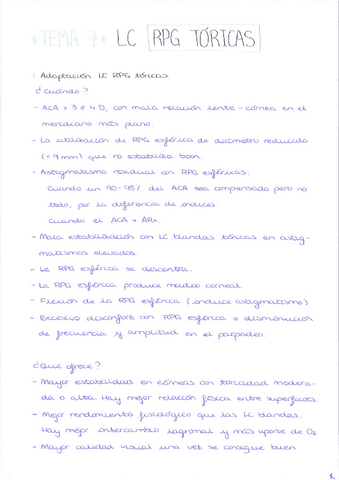 TEMA 7 LC RPG TÓRICAS
1. Adaptación LC RPG tóricas.
¿Cuándo?
- ACA > 3 ó 4 D, con mala relación lente - córnea en el
meridiano más plano.
- La utilización de RPG esférica de diámetro reducido
(< 9 mm) que no estabiliza bien.
- Astigmatismo residual con RPG esféricas:
Cuando un 90-95% del ACA sea compensado pero no
todo, por la diferencia de índices
Cuando el ACA ≠ ARx.
- Mala estabilización con LC blandas tóricas en astig-
matismos elevados.
- La RPG esférica se descentra.
- La RPG esférica produce moldeo corneal.
- Flexión de la RPG esférica (induce astigmatismo)
- Excesivo disconfort con RPG esférica o disminución
de frecuencia y amplitud en el parpadeo.
¿Qué ofrece?
- Mayor estabilidad en córneas con toricidad modera-
da o alta. Hay mejor relación física entre superficies.
- Mejor rendimiento fisiológico que las LC blandas.
Hay mejor intercambio lagrimal y más aporte de O₂.
- Mayor calidad visual una vez se consigue buen
1.